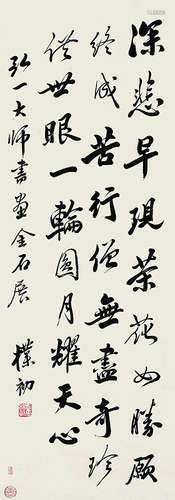 深悲早現茶花女勝願
終成苦行僧無盡奇珍
供世眼一輪圓月耀天心
弘一大師書畫金石展
樸初